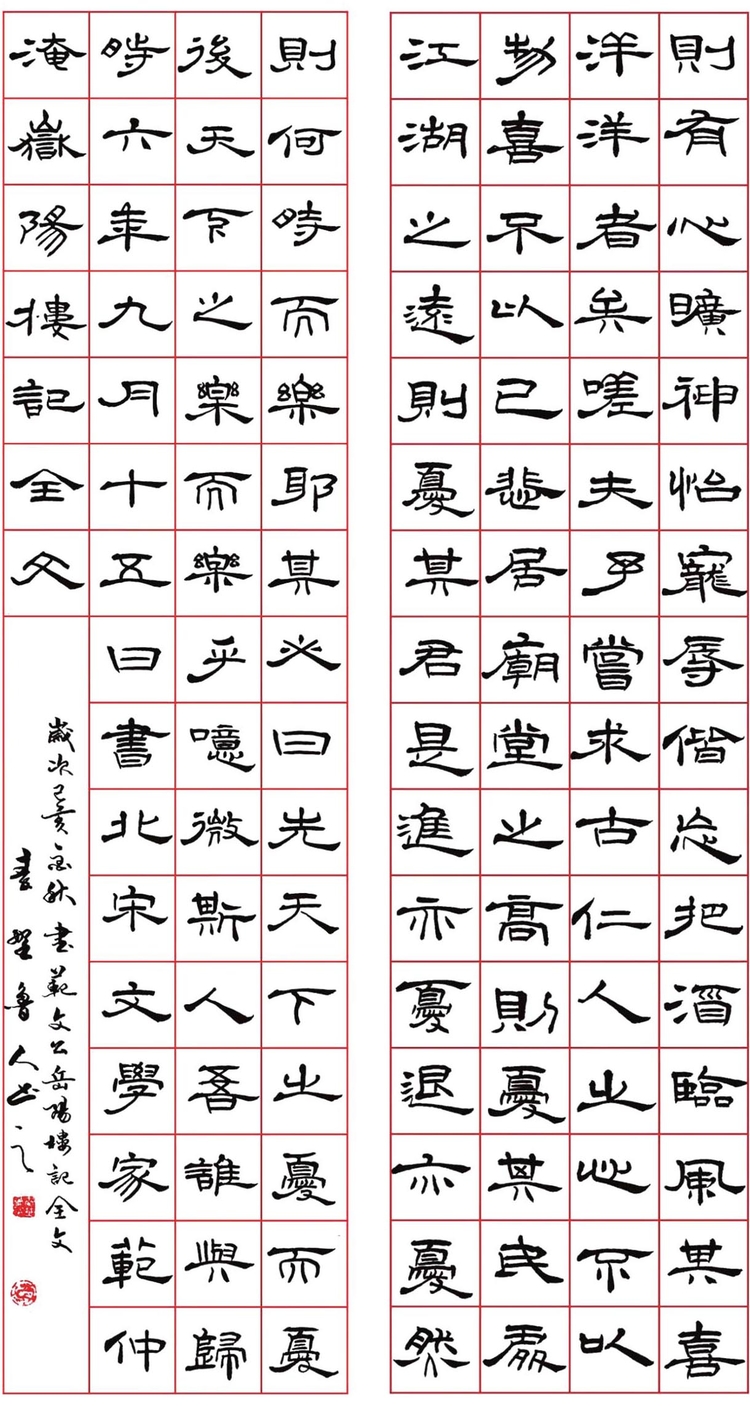 則有心曠神怡寵辱偕忘把酒臨風其喜
洋洋者矣嗟夫予嘗求古仁人之心不以
物喜不以己悲居廟堂之高則憂其民處
江湖之遠則憂其君是進亦憂退亦憂然
則何時而樂耶其必曰先天下之憂而憂
後天下之樂而樂乎噫微斯人吾誰與歸
時六年九月十五日書北宋文學家範仲
淹嶽陽樓記全文
歲次己亥金秋書範文公岳陽樓記全文
魯人